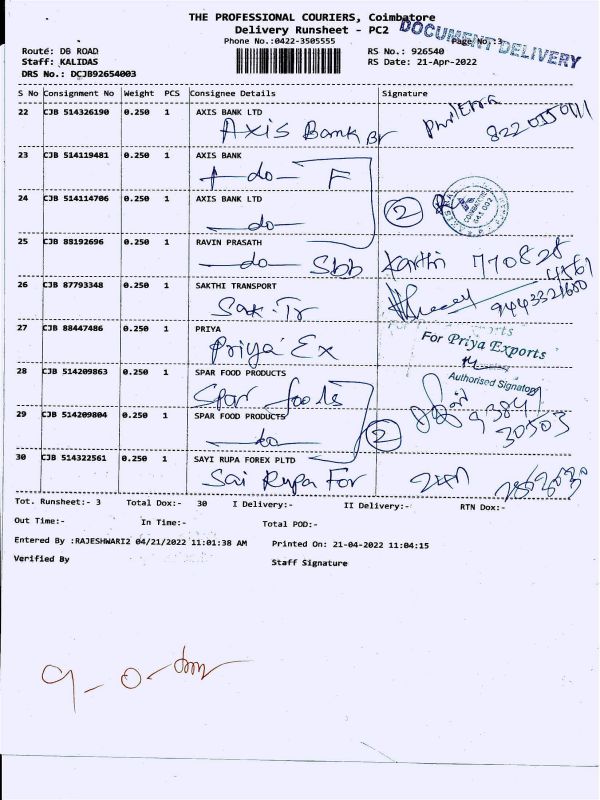 THE PROFESSIONAL COURIERS, Coimbatore
Delivery Runsheet - PC2
DOCUMENT DELIVERY
Phone No.:0422-3505555
Page No.:3
Route: DB ROAD
RS No.: 926540
Staff: KALIDAS
RS Date: 21-Apr-2022
DRS No.: DCJB92654003
S No Consignment No Weight PCS Consignee Details Signature
22 CJB 514326190 0.250 1 AXIS BANK LTD
Axis Bank Br
23 CJB 514119481 0.250 1 AXIS BANK
do F
24 CJB 514114706 0.250 1 AXIS BANK LTD
do
2
25 CJB 88192696 0.250 1 RAVIN PRASATH
do Sbb Karthi 770828
26 CJB 87793348 0.250 1 SAKTHI TRANSPORT
Sak. Tr 9443321600
27 CJB 88447486 0.250 1 PRIYA
Priya Ex
For Priya Exports
Authorised Signatory
28 CJB 514209863 0.250 1 SPAR FOOD PRODUCTS
Spar foods
29 CJB 514209804 0.250 1 SPAR FOOD PRODUCTS
do
2
9384
30503
30 CJB 514322561 0.250 1 SAYI RUPA FOREX PLTD
Sai Rupa For
Tot. Runsheet:- 3 Total Dox:- 30 I Delivery:- II Delivery:- RTN Dox:-
Out Time:- In Time:- Total POD:-
Entered By :RAJESHWARI2 04/21/2022 11:01:38 AM Printed On: 21-04-2022 11:04:15
Verified By Staff Signature